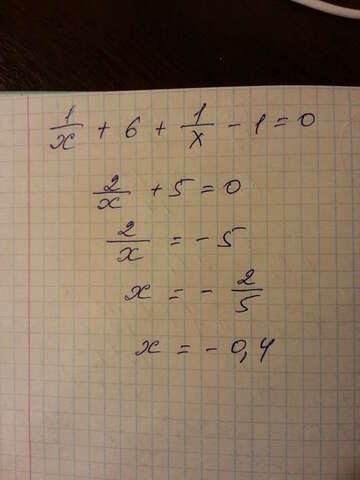 1/x + 6 + 1/x - 1 = 0
2/x + 5 = 0
2/x = - 5
x = - 2/5
x = - 0,4